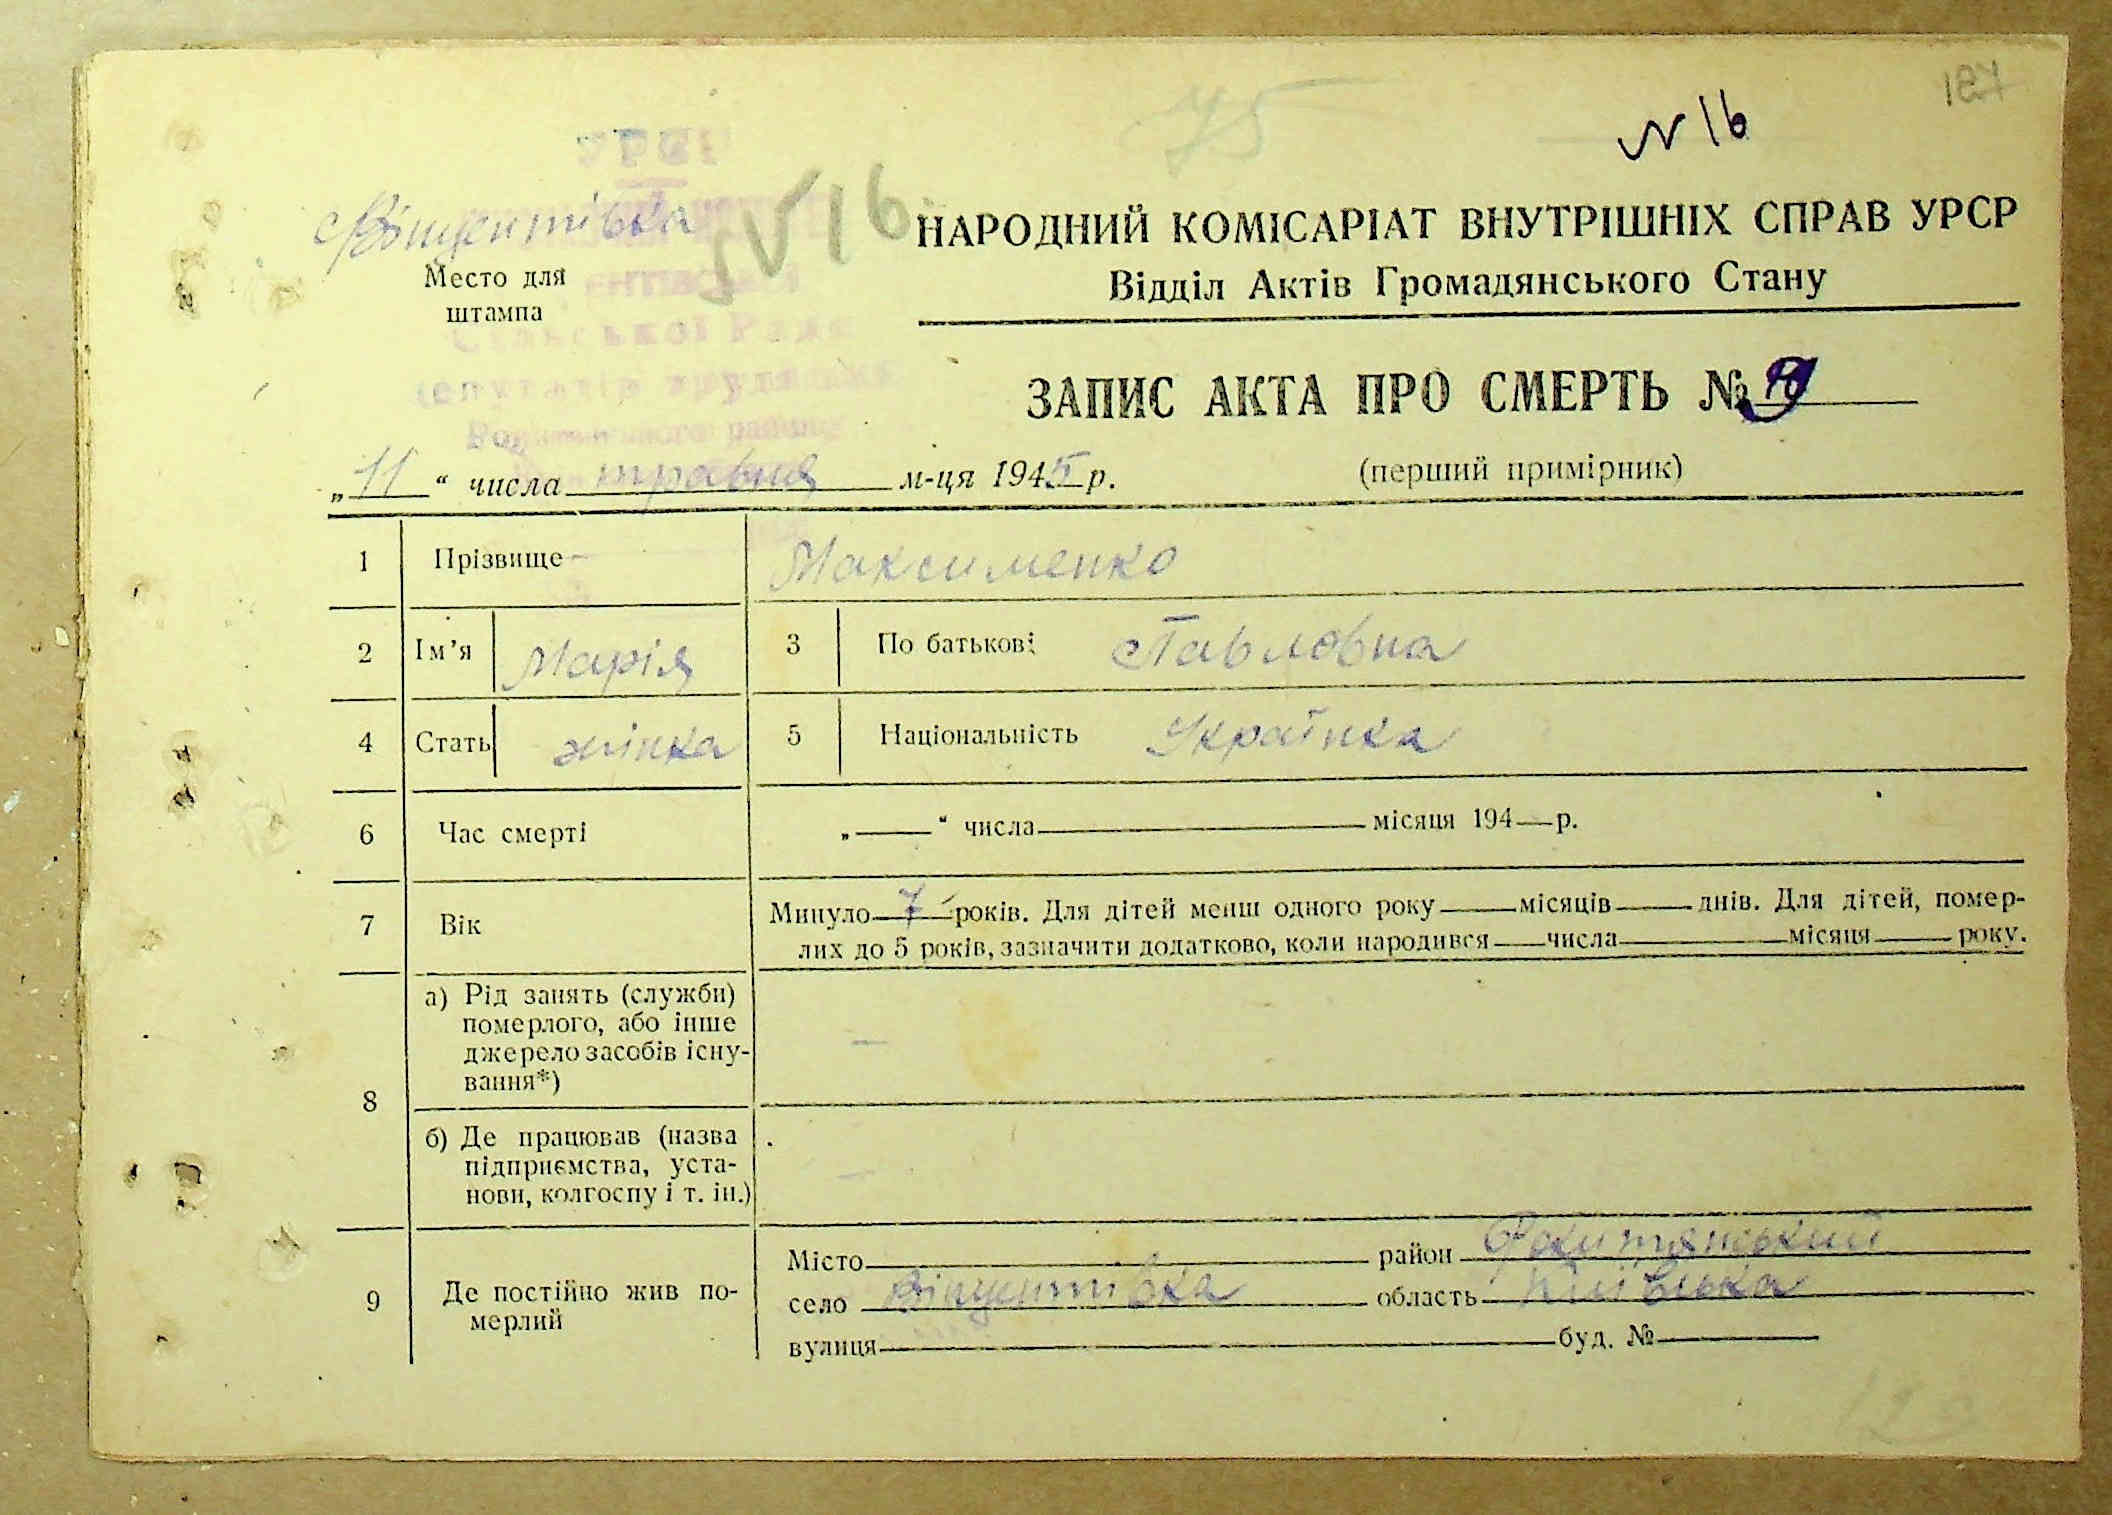 187
75
N 16
Вінцентівка
N 16
Место для
штампа
ЕНТІВСЬКА
Сільської Ради
депутатів трудящих
району
НАРОДНИЙ КОМІСАРІАТ ВНУТРІШНІХ СПРАВ УРСР
Відділ Актів Громадянського Стану
ЗАПИС АКТА ПРО СМЕРТЬ № 9
„11“ числа травня м-ця 1945 р.
(перший примірник)
1 Прізвище Максименко
2 Ім’я Марія 3 По батькові Павловна
4 Стать жінка 5 Національність Українка
6 Час смерті „ “ числа місяця 194 р.
7 Вік Минуло 7 років. Для дітей менш одного року місяців днів. Для дітей, помер-
лих до 5 років, зазначити додатково, коли народився числа місяця року.
8 а) Рід занять (служби)
померлого, або інше
джерело засобів існу-
вання*) —
б) Де працював (назва
підприємства, уста-
нови, колгоспу і т. ін.) —
9 Де постійно жив по-
мерлий
Місто район Рокитянський
село Вінцентівка область Київська
вулиця буд. №